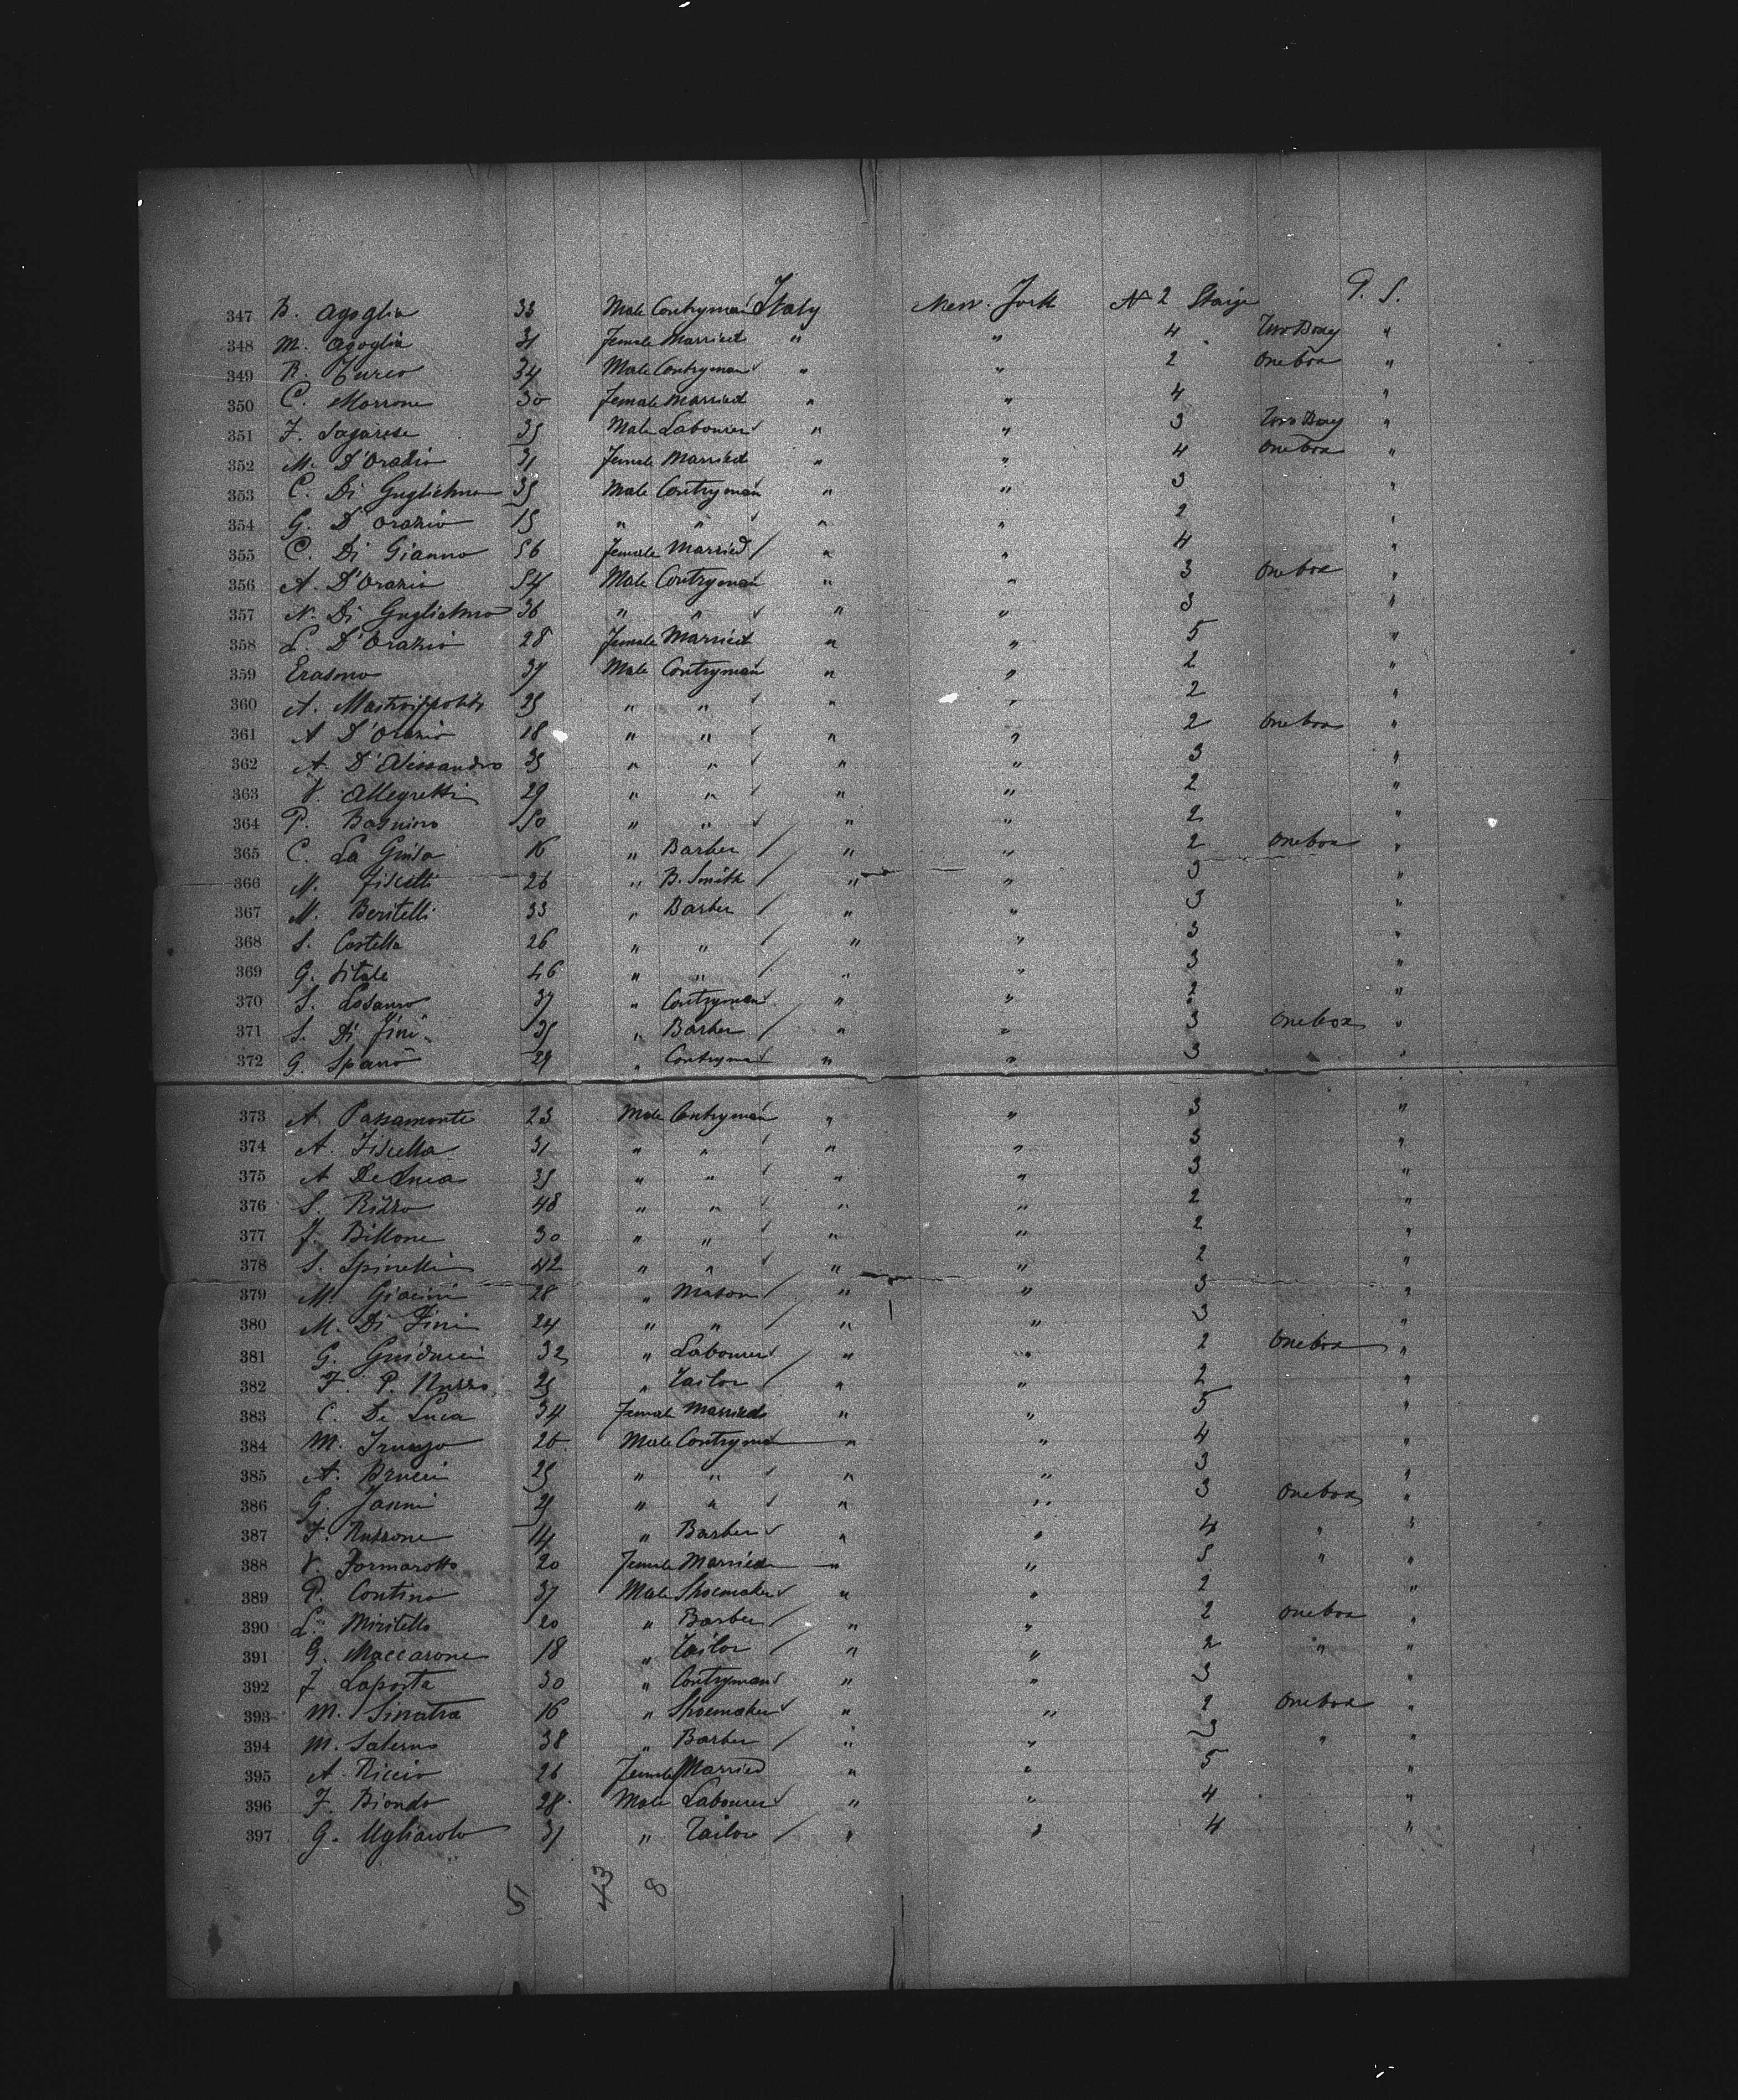 347 B. Agoglia 33 Male Contryman Italy New. York N 2 Staige P. S.
348 M. Agoglia 31 Female Married " " 4 Two Boxy "
349 R. Turco 34 Male Contryman " " 2 One box "
350 C. Morrone 30 Female Married " " 4 "
351 F. Sagarese 35 Male Labourer " " 3 Two Boxy "
352 M. D'Orazio 31 Female Married " " 4 One box "
353 C. Di Guglielmo 35 Male Contryman " " 3 "
354 G. D'Orazio 15 " " " " 2 "
355 C. Di Gianno 56 Female Married " " 4 "
356 A. D'Orazio 54 Male Contryman " " 3 One box "
357 N. Di Guglielmo 36 " " " " 3 "
358 L. D'Orazio 28 Female Married " " 5 "
359 Erasmo 37 Male Contryman " " 2 "
360 A. Mastroippolito 25 " " " " 2 "
361 A D'Orazio 18 " " " " 2 One box "
362 A. D'Alissandro 35 " " " " 3 "
363 V. Allegretti 29 " " " " 2 "
364 P. Bagnino 50 " " " " 2 "
365 C. La Guisa 16 " Barber " " 2 One box "
366 M. Fiscelli 26 " B. Smith " " 3 "
367 M. Beritelli 33 " Barber " " 3 "
368 S. Castella 26 " " " " 3 "
369 G. Vitale 46 " " " " 3 "
370 S. Losauro 37 " Contryman " " 2 "
371 S. Di Fini 35 " Barber " " 3 One box "
372 G. Spanò 29 " Contryman " " 3 "
373 A. Passamonte 23 Male Contryman " " 3 "
374 A. Fiscella 31 " " " " 3 "
375 A De Luca 35 " " " " 3 "
376 S. Rizzo 48 " " " " 2 "
377 F. Billone 30 " " " " 2 "
378 S. Spinelli 42 " " " " 2 "
379 M. Giacini 28 " Mason " " 3 "
380 M. Di Fini 24 " " " " 3 "
381 G. Guiducci 32 " Labourer " " 2 One box "
382 F. P. Nuzzo 25 " Tailor " " 2 "
383 C. De Luca 34 Female Married " " 5 "
384 M. 26 Male Contryman " " 4 "
385 A. Brucci 25 " " " " 3 "
386 G. Janni 25 " " " " 3 One box "
387 F. Nuzzone 14 " Barber " " 4 " "
388 V. Formarotto 20 Female Married " " 5 " "
389 P. Contino 37 Male Shoemaker " " 2 "
390 L. Miritello 20 " Barber " " 2 One box "
391 G. Maccarone 18 " Tailor " " 2 " "
392 F Laporta 30 " Contryman " " 3 "
393 M. Sinatra 16 " Shoemaker " " 2 One box "
394 M. Salerno 38 " Barber " " 3 " "
395 A. Riccio 26 Female Married " " 5 "
396 F. Biondo 28 Male Labourer " " 4 "
397 G. Ugliarolo 31 " Tailor " " 4 "
5 43 8